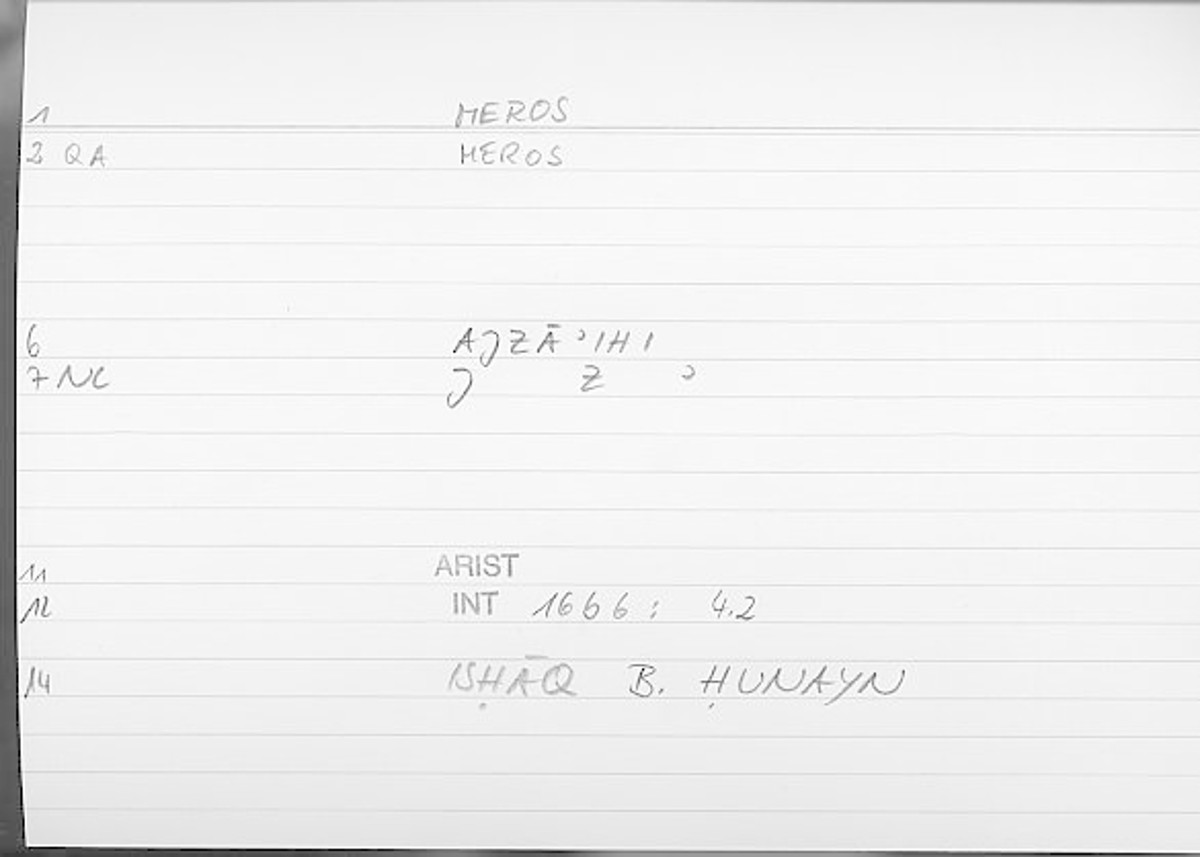 1 MEROS
2 QA MEROS
6 AJZĀʾIHI
7 NC J Z ʾ
11 ARIST
12 INT 1666: 4.2
14 ISḤĀQ B. ḤUNAYN